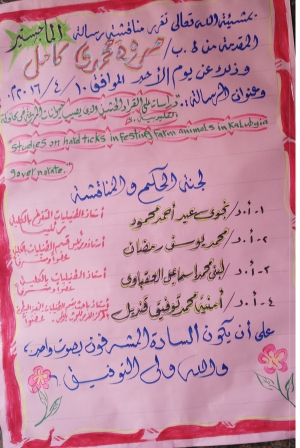 بمشيئة الله تعالى تقرر مناقشة رسالة الماجستير
المقدمة من ط.ب/ مروة فخري كامل
وذلك عن يوم الأحد الموافق ١٠ / ٤ / ٢٠١٦
وعنوان الرسالة:
دراسات على القراد الصلب الذى يصيب حيوانات المزرعة فى محافظة
القليوبية
studies on hard ticks infesting farm animals in Kalubyia
governorate.
لجنة الحكم والمناقشة
١- أ.د/ نجوى عيد أحمد محمود أستاذ الطفيليات
٢- أ.د/ محمد يوسف رمضان أستاذ ورئيس قسم الطفيليات
٣- أ.د/ لبنى محمد اسماعيل العقباوى أستاذ الطفيليات بالكلية
٤- أ.د/ أمنية محمد توفيق قنديل
على أن يكون السادة المشرفون بصوت واحد،
والله ولى التوفيق